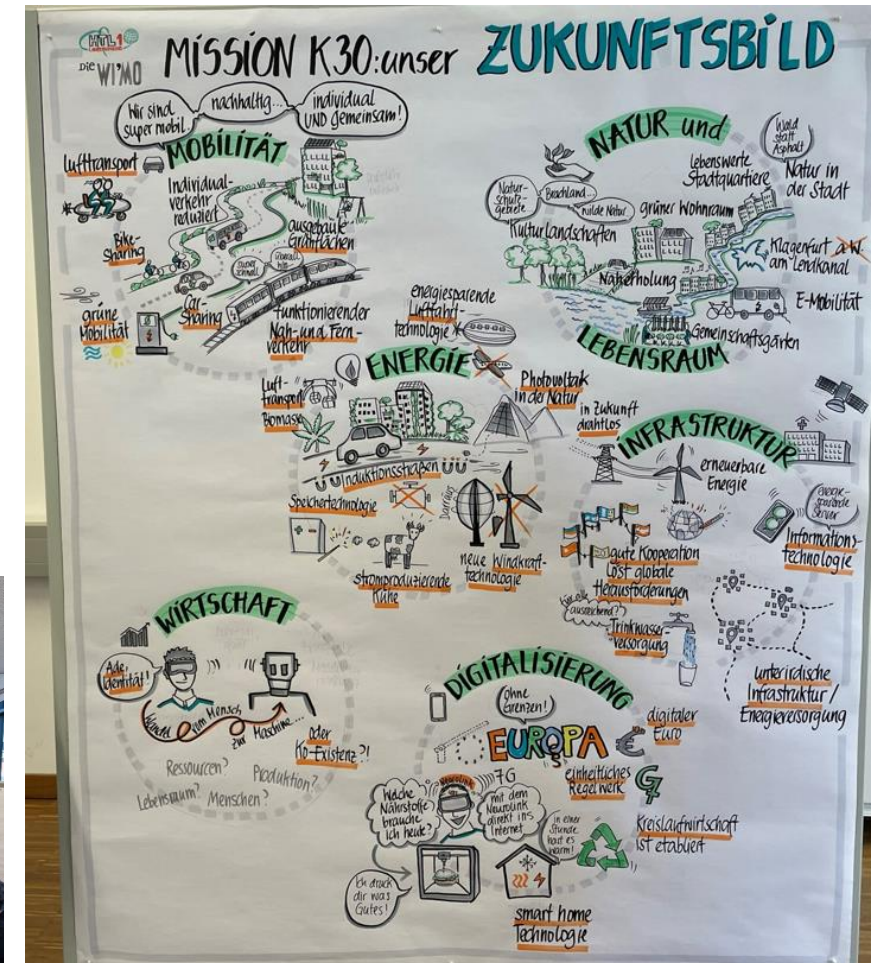 HTL1
Die WI'MO
MISSION K30: unser ZUKUNFTSBILD
Wir sind
super mobil.
nachhaltig...
individual
UND gemeinsam!
MOBILITÄT
Lufttransport
Individual-
verkehr
reduziert
ausgebaute
Grünflächen
Bike-
Sharing
super
schnell
überall
hin
grüne
Mobilität
Car-
Sharing
funktionierender
Nah- und Fern-
verkehr
NATUR und
Wald
statt
Asphalt
Lebenswerte
Stadtquartiere
Natur in
der Stadt
Natur-
schutz-
gebiete
Brachland...
wilde Natur
grüner Wohnraum
Kulturlandschaften
Klagenfurt a.W.
am Lendkanal
Naherholung
E-Mobilität
Gemeinschaftsgärten
LEBENSRAUM
energiesparende
Luftfahrt-
technologie
ENERGIE
Luft-
transport
Biomasse
Photovoltaik
in der Natur
Induktionsstraßen
Speichertechnologie
Darrius
stromproduzierende
Kühe
neue Windkraft-
technologie
in Zukunft
drahtlos
INFRASTRUKTUR
erneuerbare
Energie
energie-
sparende
Server
Informations-
technologie
gute Kooperation
löst globale
Herausforderungen
ausreichend?
Trinkwasser-
versorgung
unterirdische
Infrastruktur/
Energieversorgung
WIRTSCHAFT
Ade,
Identität!
Wandel vom Mensch
zur Maschine...
oder
Ko-Existenz?!
Ressourcen?
Produktion?
Lebensraum?
Menschen?
DIGITALISIERUNG
Ohne
Grenzen!
EUROPA
digitaler
Euro
€
einheitliches
Regelwerk
G7
Neurolink
7G
Welche
Nährstoffe
brauche
ich heute?
mit dem
Neurolink
direkt ins
Internet
in einer
Stunde
hast es
warm!
Kreislaufwirtschaft
ist etabliert
Ich druck
dir was
Gutes!
smart home
Technologie